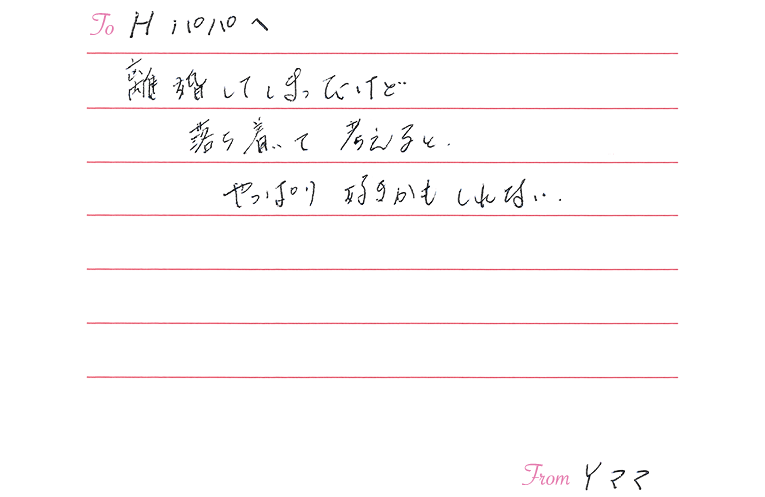 To Hパパへ
離婚してしまったけど
落ち着いて考えると.
やっぱり好きかもしれない.
From Yママ